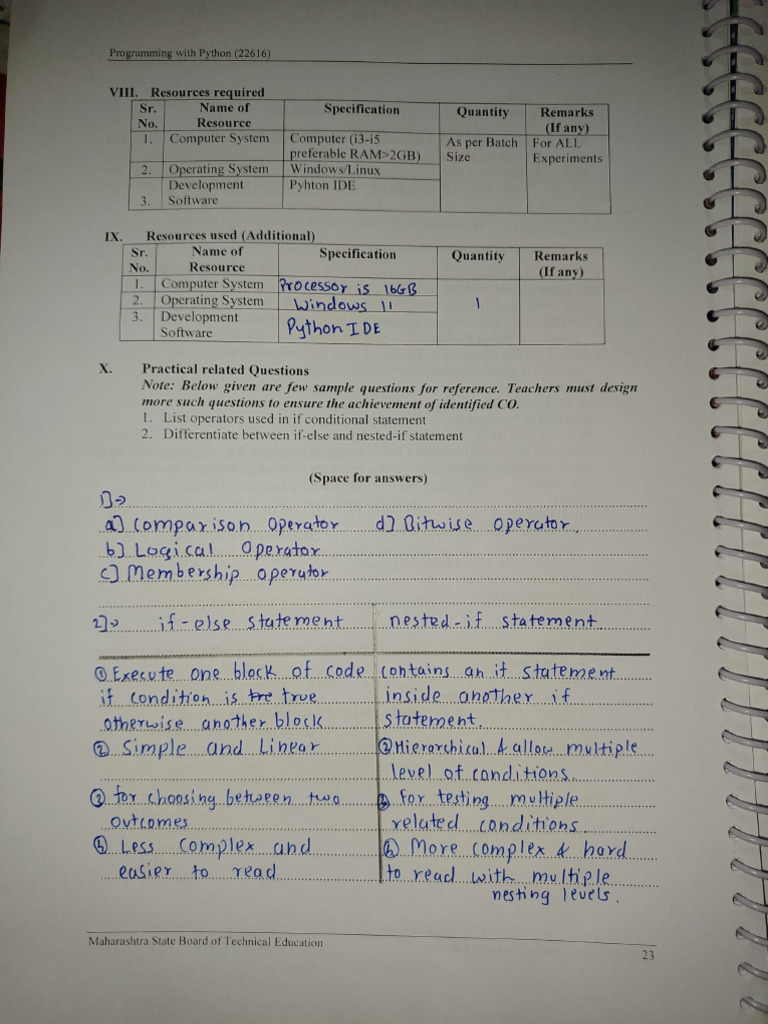 Programming with Python (22616)
VIII. Resources required
Sr. No. Name of Resource Specification Quantity Remarks (If any)
1. Computer System Computer (i3-i5 preferable RAM>2GB) As per Batch Size For ALL Experiments
2. Operating System Windows/Linux
3. Development Software Pyhton IDE
IX. Resources used (Additional)
Sr. No. Name of Resource Specification Quantity Remarks (If any)
1. Computer System Processor is 16GB
2. Operating System Windows 11 1
3. Development Software Python IDE
X. Practical related Questions
Note: Below given are few sample questions for reference. Teachers must design
more such questions to ensure the achievement of identified CO.
1. List operators used in if conditional statement
2. Differentiate between if-else and nested-if statement
(Space for answers)
1]→
a] Comparison Operator d] Bitwise operator.
b] Logical Operator
c] Membership operator
2]→ if-else statement nested-if statement
① Execute one block of code contains an if statement
if condition is tre true inside another if
otherwise another block statement.
② Simple and Linear ② Hierarchical & allow multiple
level of conditions.
③ for choosing between two ③ for testing multiple
outcomes related conditions.
Less complex and More complex & hard
easier to read to read with multiple
nesting levels.
Maharashtra State Board of Technical Education
23